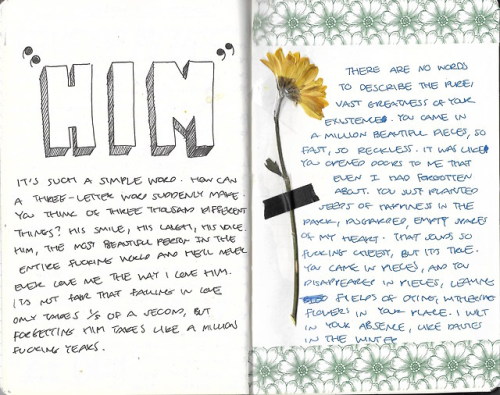 "HIM"
IT'S SUCH A SIMPLE WORD. HOW CAN
A THREE-LETTER WORD SUDDENLY MAKE
YOU THINK OF THREE THOUSAND DIFFERENT
THINGS? HIS SMILE, HIS LAUGH, HIS VOICE.
HIM, THE MOST BEAUTIFUL PERSON IN THE
ENTIRE FUCKING WORLD AND HE'LL NEVER
EVER LOVE ME THE WAY I LOVE HIM.
IT'S NOT FAIR THAT FALLING IN LOVE
ONLY TAKES 1/5 OF A SECOND, BUT
FORGETTING HIM TAKES LIKE A MILLION
FUCKING YEARS.
THERE ARE NO WORDS
TO DESCRIBE THE PURE,
VAST GREATNESS OF YOUR
EXISTENCE. YOU CAME IN
A MILLION BEAUTIFUL PIECES, SO
FAST, SO RECKLESS. IT WAS LIKE
YOU OPENED DOORS TO ME THAT
EVEN I HAD FORGOTTEN
ABOUT. YOU JUST PLANTED
SEEDS OF HAPPINESS IN THE
DARK, DISCARDED, EMPTY SPACES
OF MY HEART. THAT SOUNDS SO
FUCKING CHEESY, BUT ITS TRUE.
YOU CAME IN PIECES, AND YOU
DISAPPEARED IN PIECES, LEAVING
FIELDS OF DYING, WITHERING
FLOWERS IN YOUR PLACE. I WILT
IN YOUR ABSENCE, LIKE DAISIES
IN THE WINTER